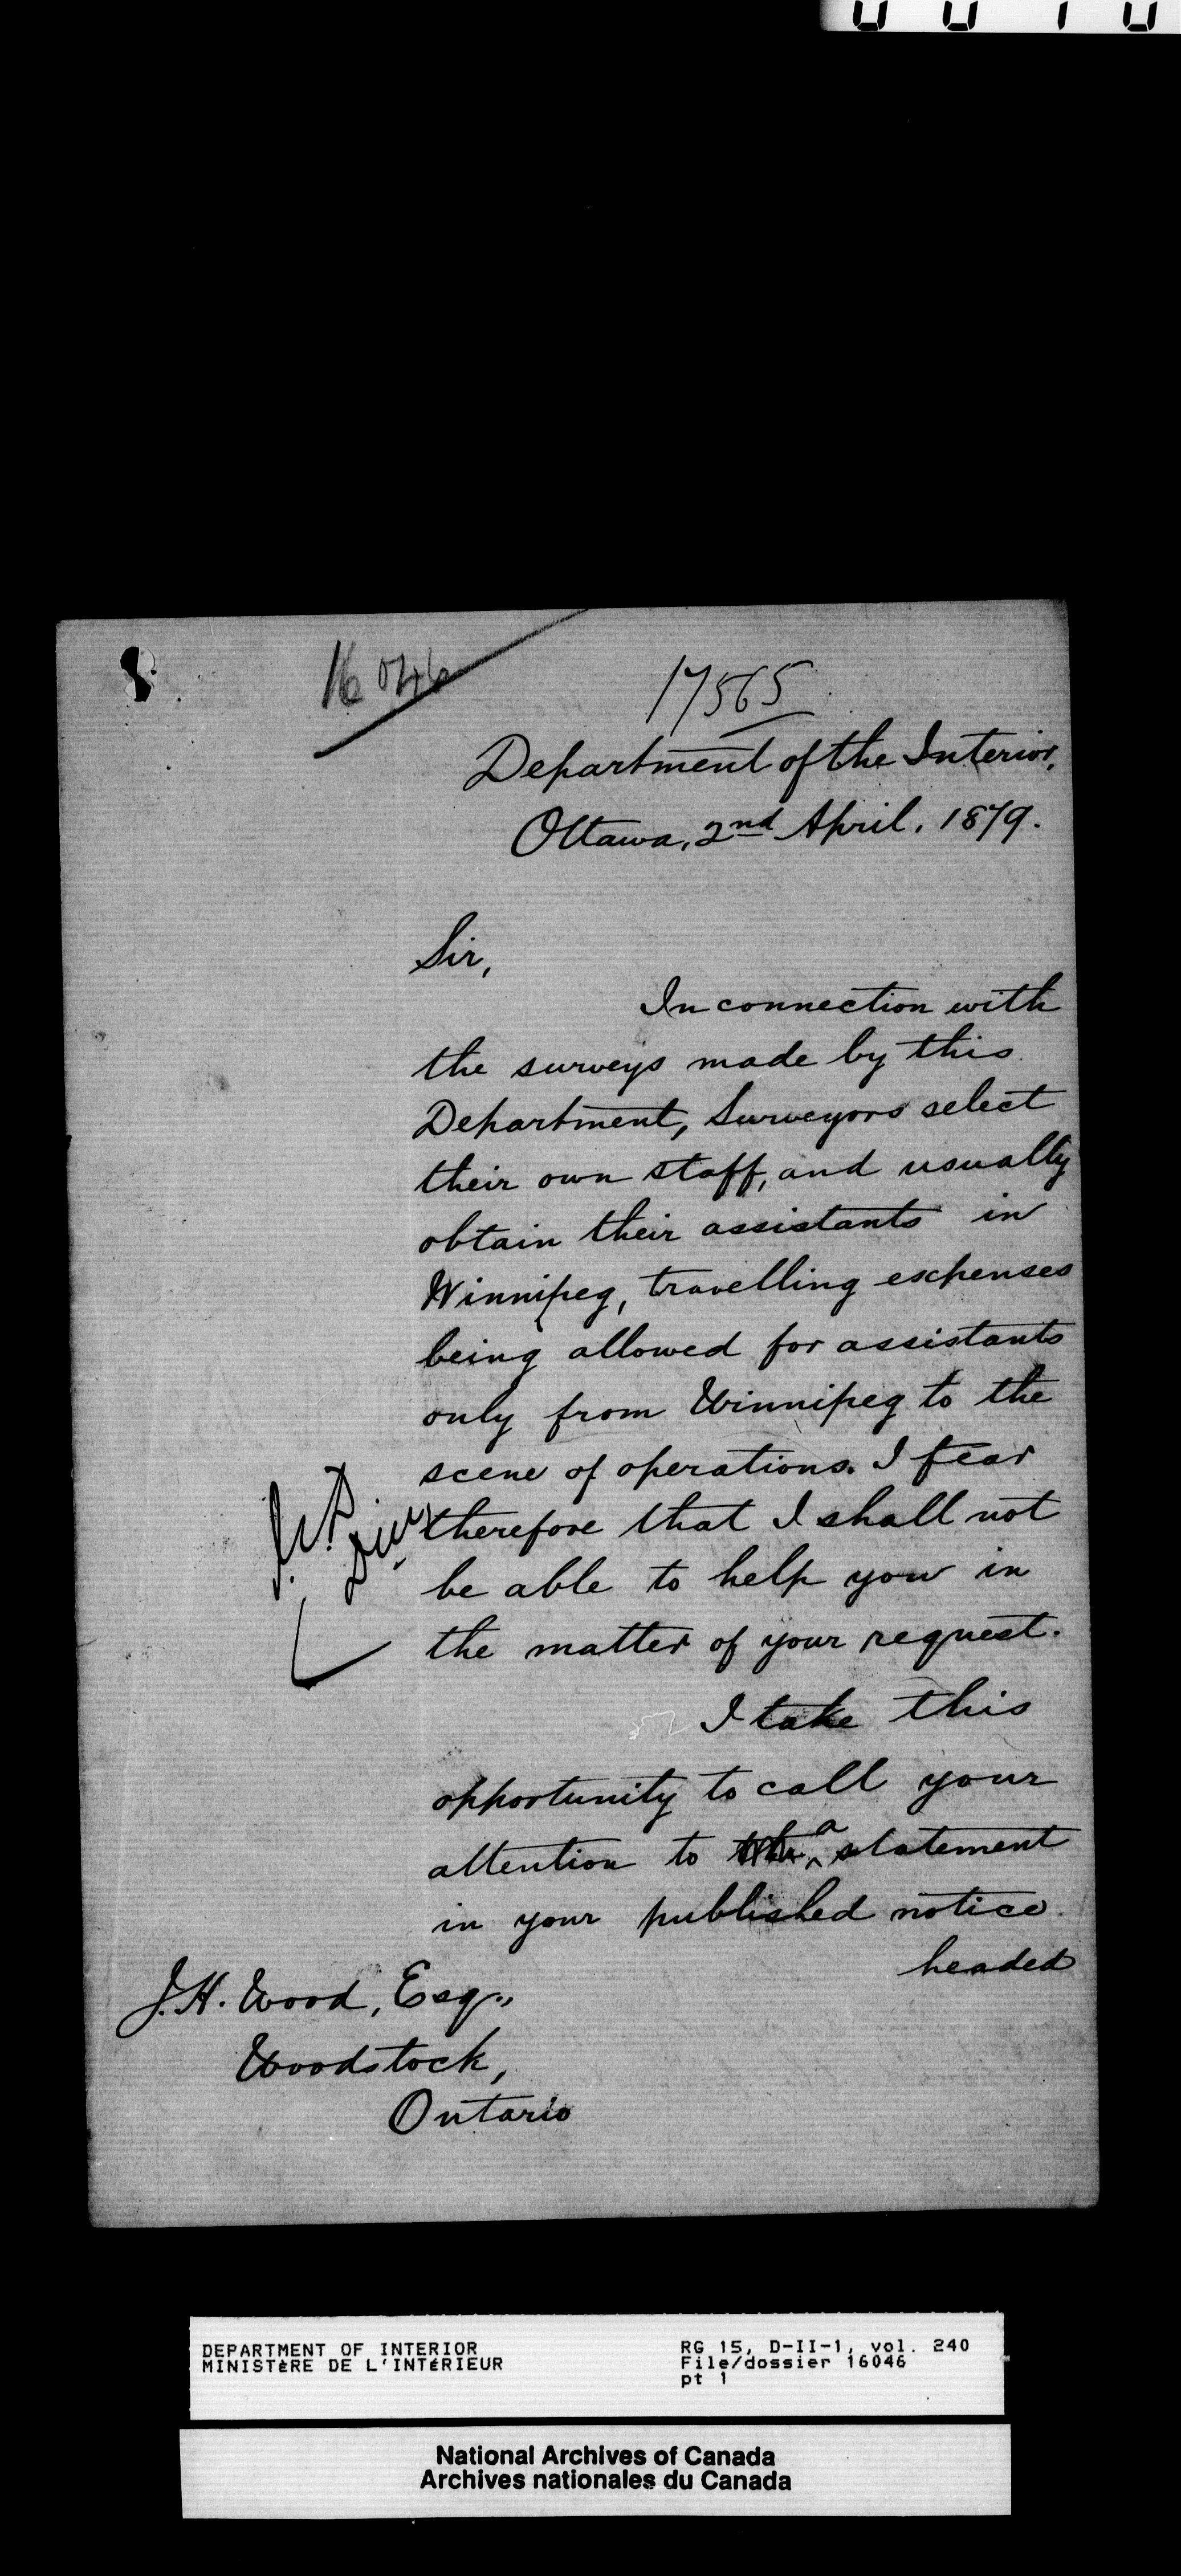 16046
17565
Department of the Interior,
Ottawa, 2nd April, 1879.
Sir,
In connection with
the surveys made by this
Department, Surveyors select
their own staff, and usually
obtain their assistants in
Winnipeg, travelling expenses
being allowed for assistants
only from Winnipeg to the
scene of operations. I fear
therefore that I shall not
be able to help you in
the matter of your request.
I take this
opportunity to call your
attention to a statement
in your published notice
headed
J.H. Wood, Esq.,
Woodstock,
Ontario
DEPARTMENT OF INTERIOR
MINISTÈRE DE L'INTÉRIEUR
RG 15, D-II-1, vol. 240
File/dossier 16046
pt 1
National Archives of Canada
Archives nationales du Canada